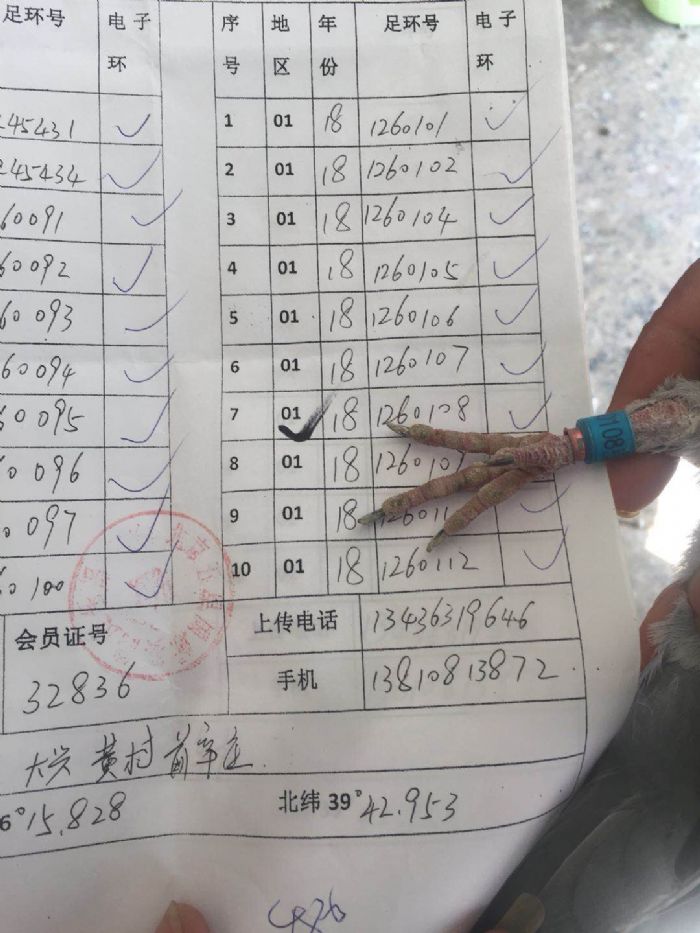 足环号 电子环 序号 地区 年份 足环号 电子环
45431 1 01 18 1260101
45434 2 01 18 1260102
60091 3 01 18 1260104
60092 4 01 18 1260105
60093 5 01 18 1260106
60094 6 01 18 1260107
60095 7 01 18 1260108
60096 8 01 18
097 9 01 18
100 10 01 18 1260112
会员证号 上传电话 13436319646
32836 手机 13810813872
大兴 黄村 前辛庄
6°15.828 北纬 39°42.953